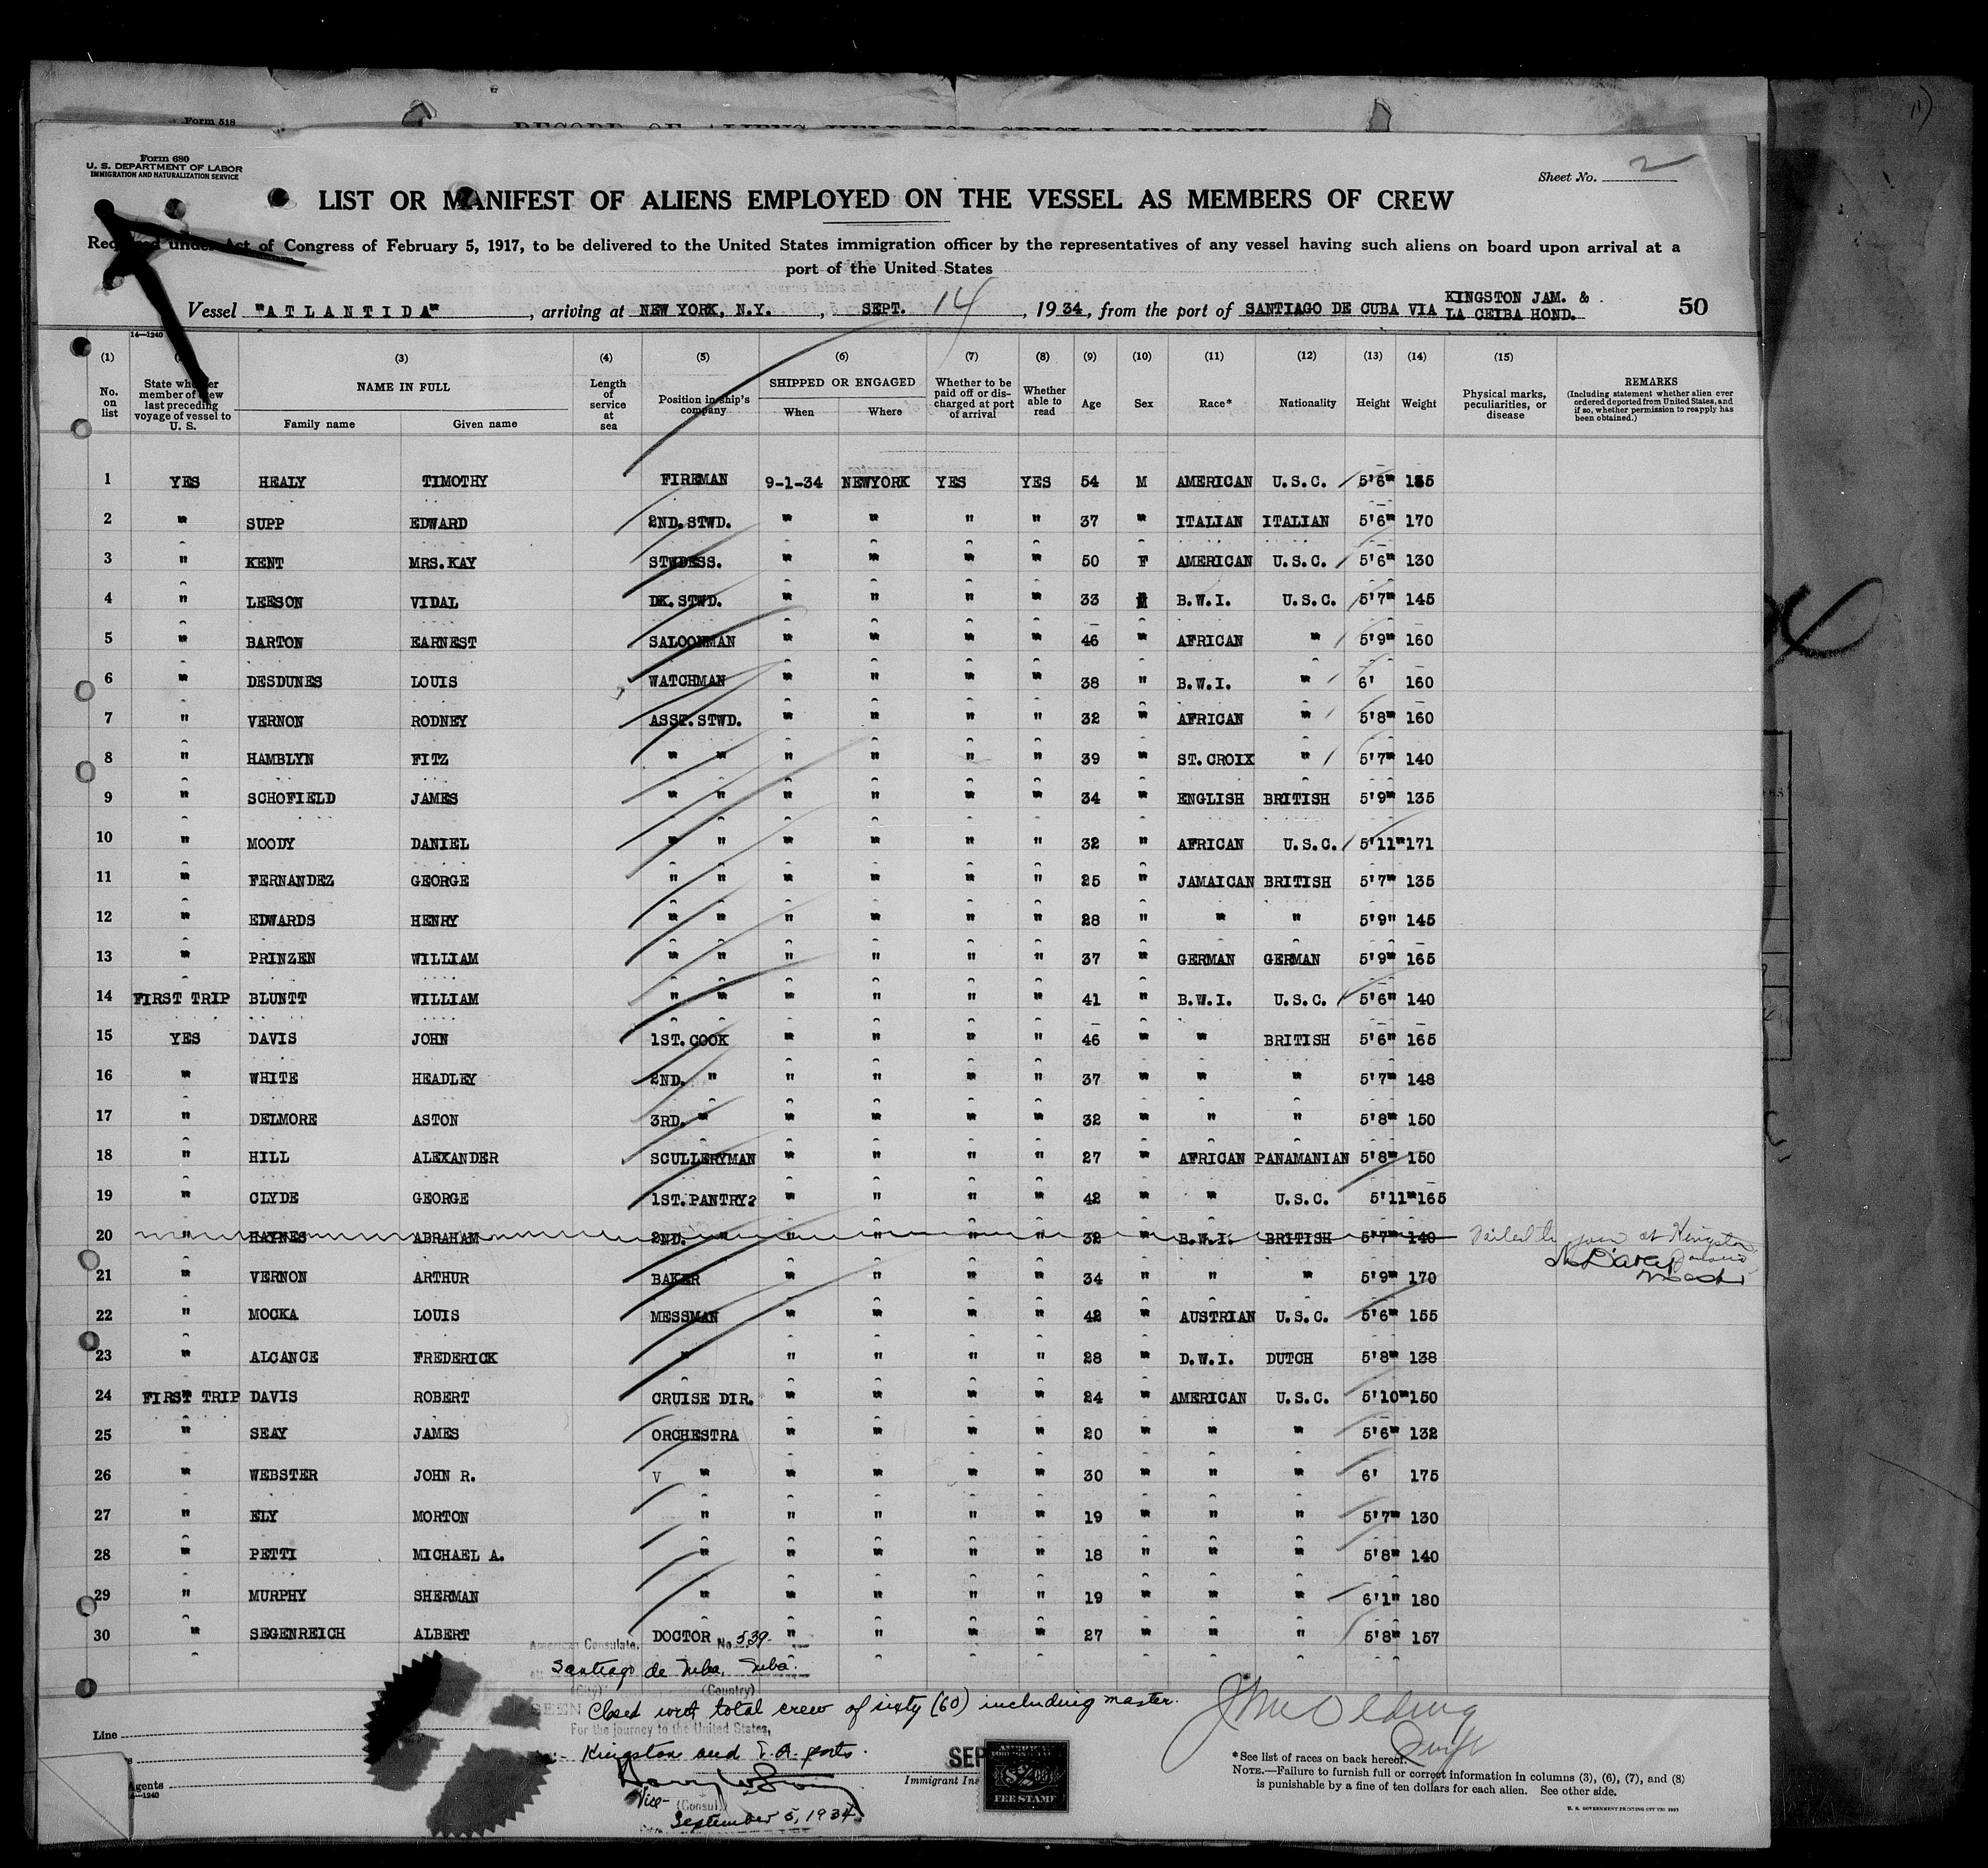 Form 518
RECORD OF ALIENS HELD FOR SPECIAL INQUIRY
Form 680
U. S. DEPARTMENT OF LABOR
IMMIGRATION AND NATURALIZATION SERVICE
Sheet No. 2
LIST OR MANIFEST OF ALIENS EMPLOYED ON THE VESSEL AS MEMBERS OF CREW
Required under Act of Congress of February 5, 1917, to be delivered to the United States immigration officer by the representatives of any vessel having such aliens on board upon arrival at a
port of the United States
Vessel "ATLANTIDA", arriving at NEW YORK, N.Y., SEPT. 14, 1934, from the port of SANTIAGO DE CUBA VIA KINGSTON JAM. & LA CEIBA HOND. 50
14-1240
(1) (3) (4) (5) (6) (7) (8) (9) (10) (11) (12) (13) (14) (15)
No. on list State whether member of crew last preceding voyage of vessel to U. S. NAME IN FULL Family name Given name Length of service at sea Position in ship's company SHIPPED OR ENGAGED When Where Whether to be paid off or discharged at port of arrival Whether able to read Age Sex Race* Nationality Height Weight Physical marks, peculiarities, or disease REMARKS (Including statement whether alien ever ordered deported from United States, and if so, whether permission to reapply has been obtained.)
1 YES HEALY TIMOTHY FIREMAN 9-1-34 NEWYORK YES YES 54 M AMERICAN U.S.C. 5'6" 135
2 " SUPP EDWARD 2ND. STWD. " " " " 37 " ITALIAN ITALIAN 5'6" 170
3 " KENT MRS.KAY STWDESS. " " " " 50 F AMERICAN U.S.C. 5'6" 130
4 " LEESON VIDAL DK. STWD. " " " " 33 M B.W.I. U.S.C. 5'7" 145
5 " BARTON EARNEST SALOONMAN " " " " 46 " AFRICAN " 5'9" 160
6 " DESDUNES LOUIS WATCHMAN " " " " 38 " B.W.I. " 6' 160
7 " VERNON RODNEY ASST. STWD. " " " " 32 " AFRICAN " 5'8" 160
8 " HAMBLYN FITZ " " " " " " 39 " ST. CROIX " 5'7" 140
9 " SCHOFIELD JAMES " " " " " " 34 " ENGLISH BRITISH 5'9" 135
10 " MOODY DANIEL " " " " " " 32 " AFRICAN U.S.C. 5'11" 171
11 " FERNANDEZ GEORGE " " " " " " 25 " JAMAICAN BRITISH 5'7" 135
12 " EDWARDS HENRY " " " " " " 28 " " " 5'9" 145
13 " PRINZEN WILLIAM " " " " " " 37 " GERMAN GERMAN 5'9" 165
14 FIRST TRIP BLUNTT WILLIAM " " " " " " 41 " B.W.I. U.S.C. 5'6" 140
15 YES DAVIS JOHN 1ST. COOK " " " " 46 " " BRITISH 5'6" 165
16 " WHITE HEADLEY 2ND. " " " " " 37 " " " 5'7" 148
17 " DELMORE ASTON 3RD. " " " " " 32 " " " 5'8" 150
18 " HILL ALEXANDER SCULLERYMAN " " " " 27 " AFRICAN PANAMANIAN 5'8" 150
19 " CLYDE GEORGE 1ST. PANTRY? " " " " 42 " " U.S.C. 5'11" 165
20 " HAYNES ABRAHAM 2ND. " " " " " 32 " B.W.I. BRITISH 5'7" 140 Failed to join at Kingston Jamaica
21 " VERNON ARTHUR BAKER " " " " 34 " " " 5'9" 170 Master
22 " MOCKA LOUIS MESSMAN " " " " 42 " AUSTRIAN U.S.C. 5'6" 155
23 " ALCANCE FREDERICK " " " " " 28 " D.W.I. DUTCH 5'8" 138
24 FIRST TRIP DAVIS ROBERT CRUISE DIR. " " " " 24 " AMERICAN U.S.C. 5'10" 150
25 " SEAY JAMES ORCHESTRA " " " " 20 " " " 5'6" 132
26 " WEBSTER JOHN R. V " " " " " 30 " " " 6' 175
27 " ELY MORTON " " " " " 19 " " " 5'7" 130
28 " PETTI MICHAEL A. " " " " " 18 " " " 5'8" 140
29 " MURPHY SHERMAN " " " " " 19 " " " 6'1" 180
30 " SEGENREICH ALBERT DOCTOR " " " " 27 " " " 5'8" 157
American Consulate, No 539.
Santiago de Cuba, Cuba.
(City) (Country)
SEEN Closed with total crew of sixty (60) including master.
For the journey to the United States,
Kingston and C. A. ports.
Vice-
(Consul)
September 5, 1934
Line
Agents
14-1240
SEP
Immigrant Ins
AMERICAN
$2.00
FEE STAMP
*See list of races on back hereof.
NOTE.—Failure to furnish full or correct information in columns (3), (6), (7), and (8)
is punishable by a fine of ten dollars for each alien. See other side.
U. S. GOVERNMENT PRINTING OFFICE